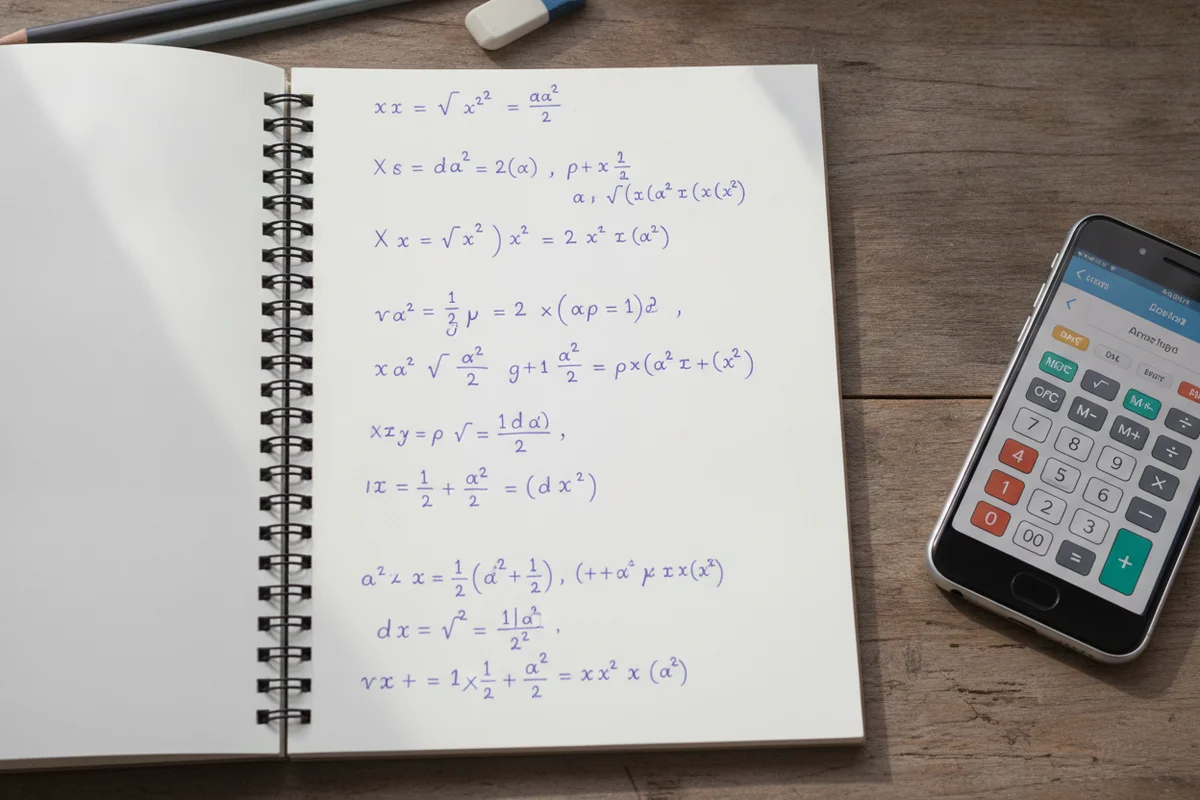 xx = √x²² = αα²/2
X s = dα² = 2(α) , ρ + x 2/2
α, √(x(α² x (x(x²)
X x = √x² ) x² = 2 x² x (α²)
vα² = 1/2 μ = 2 ×(αρ = 1)2 ,
xα² √ α²/2 g+1 α²/2 = ρ×(α² x + (x²)
xxy = ρ √ = 1dα)/2 ,
1x = 1/2 + α²/2 = (dx²)
a² x = 1/2(α² + 1/2), (++α² μ x x(x²)
dx = √² = 1|α²/2² .
vx + = 1×1/2 + α²/2 = xx² x (α²)
OFC
M-
M+
÷
7
8
9
÷
4
5
6
×
1
2
3
−
0
00
=
+
√